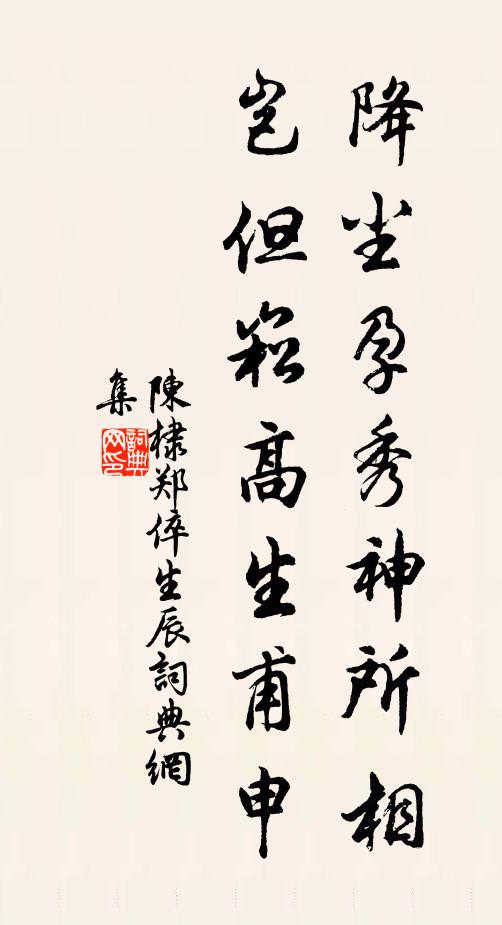 降坐孕秀神所相
岂但崧高生甫申
陳棣郑倅生辰詞典網
集
詞典
网印